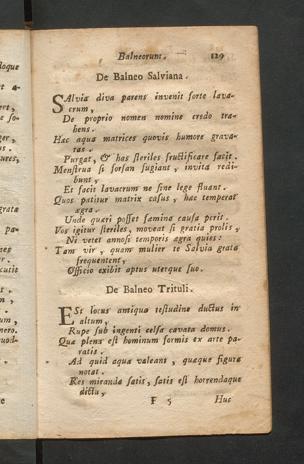 Balneorum. 129
De Balneo Salviana.
SAlvia diva parens invenit forte lava-
crum,
De proprio nomen nomine credo tra-
hens.
Hac aqua matrices quovis humore grava-
tas
Purgat, & has steriles fructificare facit.
Menstrua si forsan fugiant, invita redi-
bunt,
Et facit lavacrum ne sine lege fluant.
Quos patitur matrix casus, hac temperat
ægra.
Unde queri posset fœmina causa perit.
Vos igitur steriles, moveat si gratia prolis,
Ni vetet annosi temporis agra quies:
Tam vir, quam mulier te Salvia grata
frequentent,
Officio exibit aptus uterque suo.
De Balneo Trituli.
ESt locus antiqua testudine ductus in
altum,
Rupe sub ingenti celsa cavata domus.
Quæ plena est hominum formis ex arte pa-
ratis.
Ad quid aqua valeant, quæque figura
notat.
Res miranda satis, satis est horrendaque
dictu,
F 5 Huc